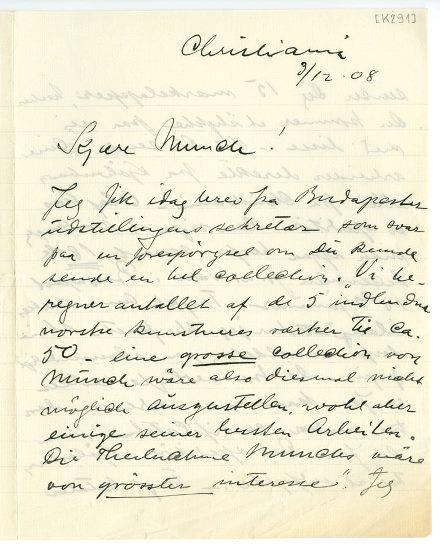 [K291]
Christiania
9/12.08
Kjære Munch!
Jeg fik idag brev fra Budapester
udstillingens sekretær som svar
paa en forespörgsel om Du kunde
sende en hel collection. "Vi be-
regner antallet af de 5 indbudne
norske kunstneres værker til ca.
50 – eine grosse collection von
Munch wäre also diesmal nicht
möglich auszustellen, wohl aber
einige seiner besten Arbeiten.
Die Theilnahme Munchs wäre
von grösster interesse". Jeg